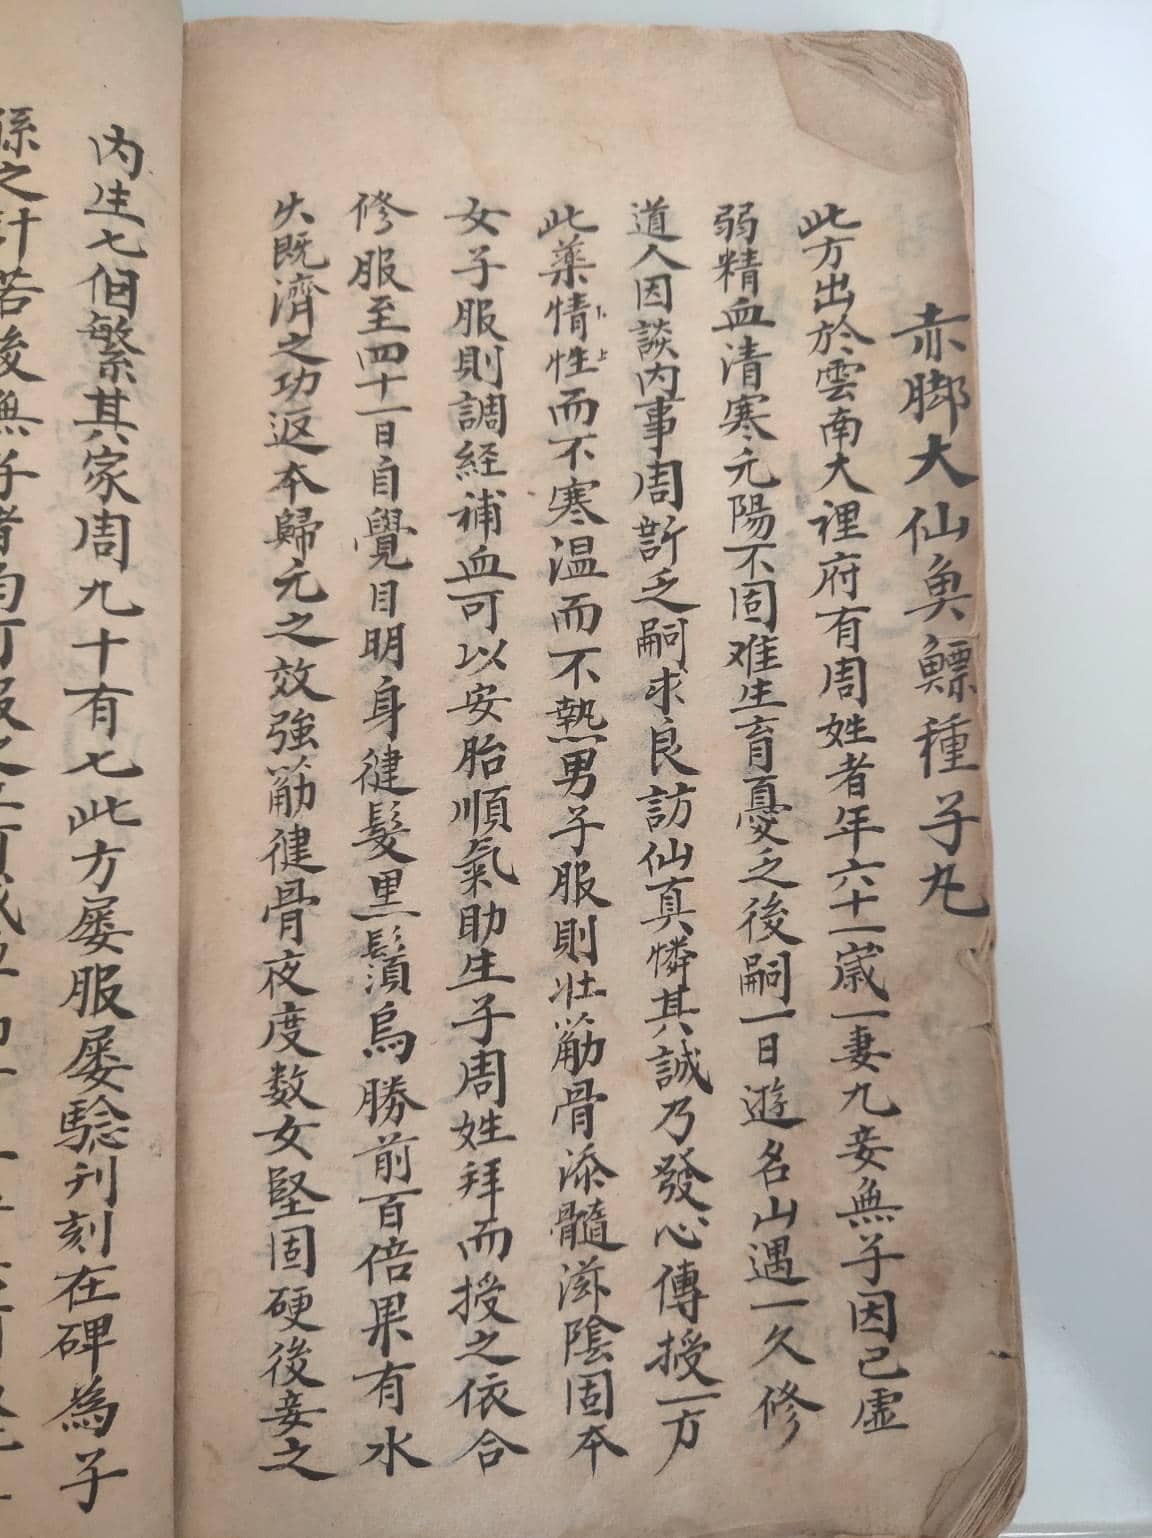 赤脚大仙魚鰾種子丸
此方出於雲南大裡府有周姓者年六十一歲一妻九妾無子因己虛
弱精血清寒元陽不固难生育憂乏後嗣一日遊名山遇一久修
道人因談内事周訴乏嗣求良訪仙真憐其誠乃發心傳授一方
此藥情性而不寒温而不熱男子服則壯筋骨添髓滋陰固本
女子服則調経補血可以安胎順氣助生子周姓拜而授之依合
修服至四十一日自覺目明身健髮黒鬚烏勝前百倍果有水
火既濟之功返本歸元之效強筋健骨夜度数女堅固硬後妾之
内生七個繁其家周九十有七此方屡服屡騐刊刻在碑為子
孫之計若後無子者